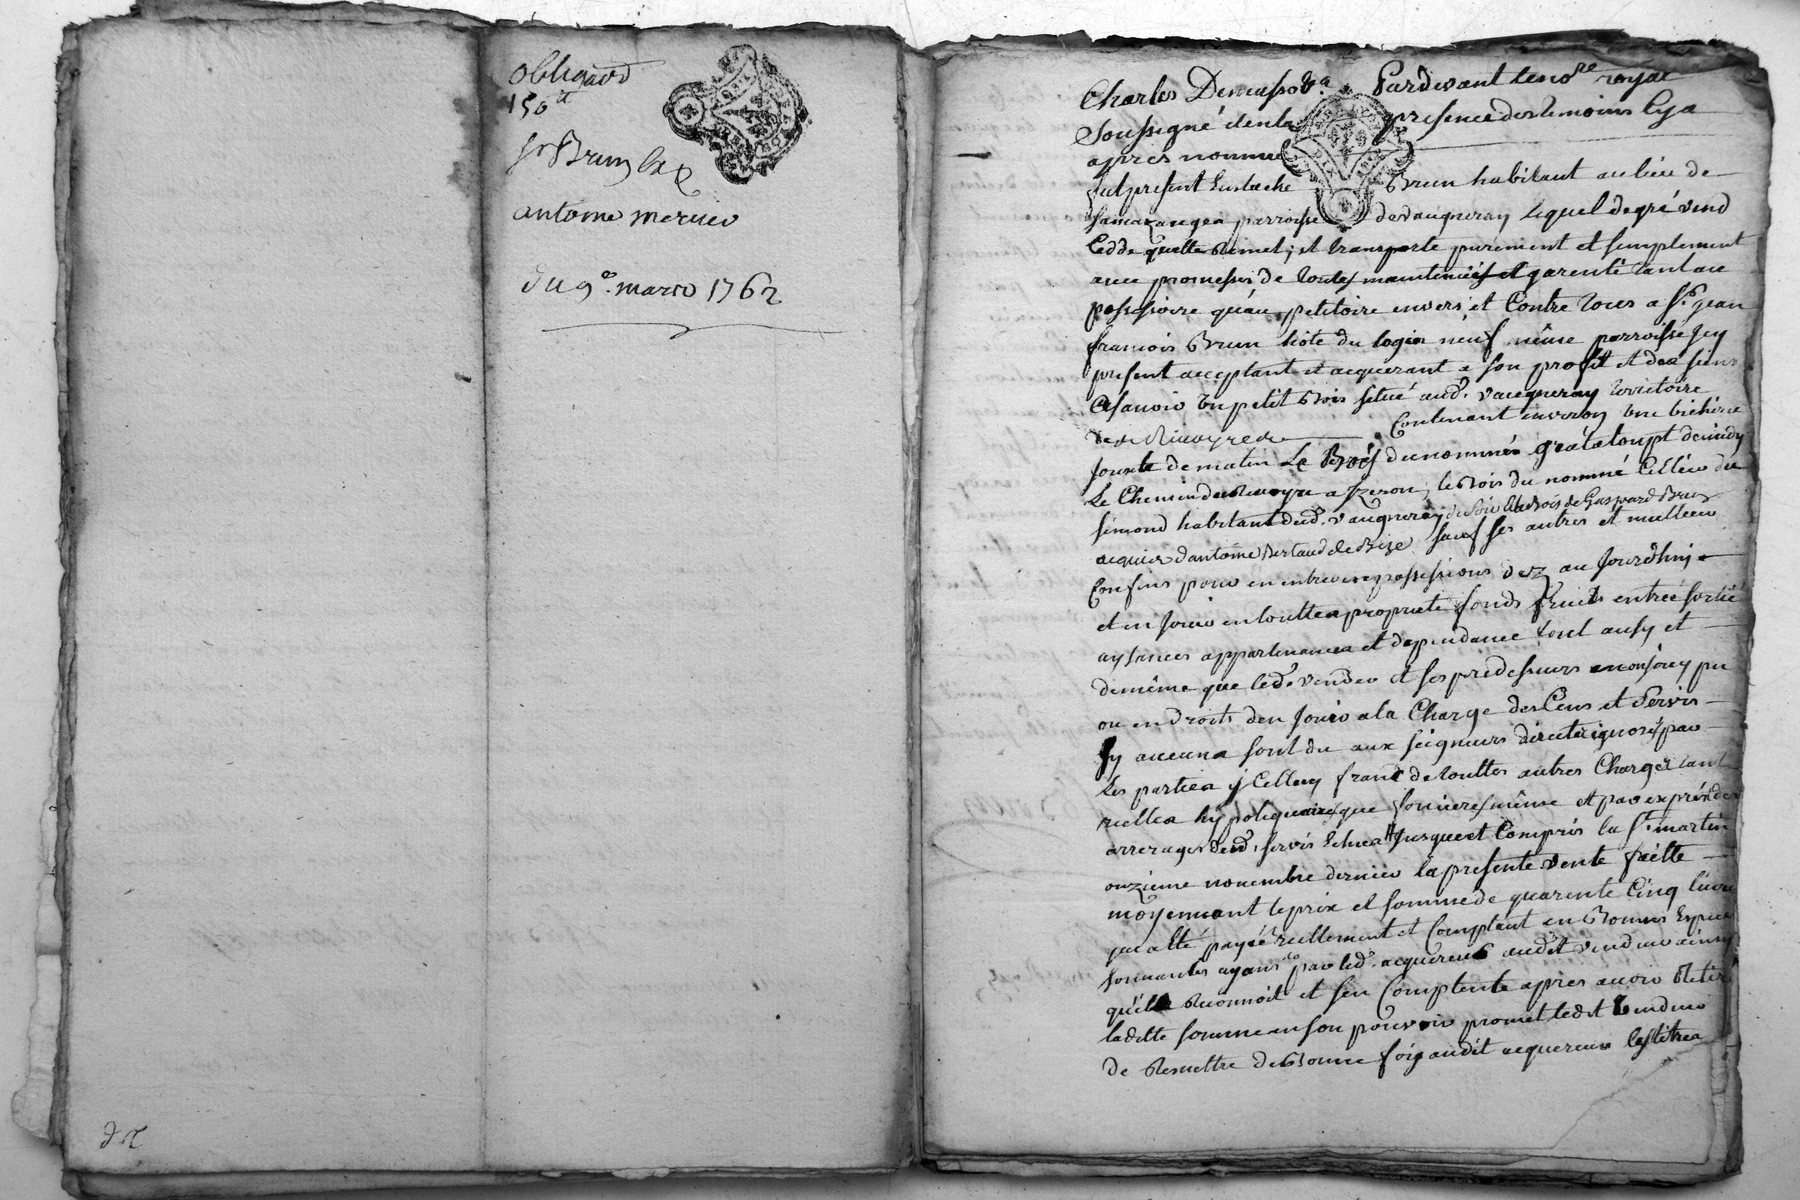 obligaõn
150tt
sr Brun
antoine mercier
du 9e. mars 1762
Charles Pardevant le nore royal
soussigné et en la presence des temoins cy a
apres nommé
fut present Eustache Brun habitant au lieu de
parroisse de vaugneray lequel de gré vend
cedde quitte remet, et transporte purement et simplement
avec promesses de toutes maintenües et garentie tant au
possessoire qu'au petitoire envers et contre tous a sr. jean
francois Brun hôte du logis neuf même parroisse jcy
present acceptant et acquerant a son profit et des siens
asavoir un petit Bois situé aud. vaugneray territoire
de contenant environ une bicherée
jouxte de matin Le Bois du nommé de midy
Le Chemin a jzeron, le Bois du nommé
simond habitant dud. vaugneray de soir le Bois de Gaspard Brun
acquis d'antoine Bertaud de Bize sauf ses autres et meilleurs
Confins pour en entrer en possessions dez au jourdhuy
et en jouir en toutte proprieté fonds fruits entrée sortie
aysances appartenances et dependance tout ainsy et
de même que led. vendeur et ses predesseurs en ont jouy pu
ou en droits d'en jouir a la Charge des Cens et servis
sy aucuns sont du aux seigneurs directs ignorés par
les parties jcelluy franc de touttes autres Charges tant
reelles hypotequaires que foncieres même et par exprés des
arrerages desd. servis echeus jusques et Compris la st. martin
onzieme novembre dernier la presente vente faitte
moyennant le prix et somme de quarente Cinq livres
payée reellement et Comptant en Bonnes Especes
sonnantes par led. acquereur audit vendeur ainsy
qu'il le reconnoit et s'en Contente apres avoir Retiré
laditte somme en son pouvoir promet ledit vendeur
de Remettre de Bonne foy audit acquereur les titres